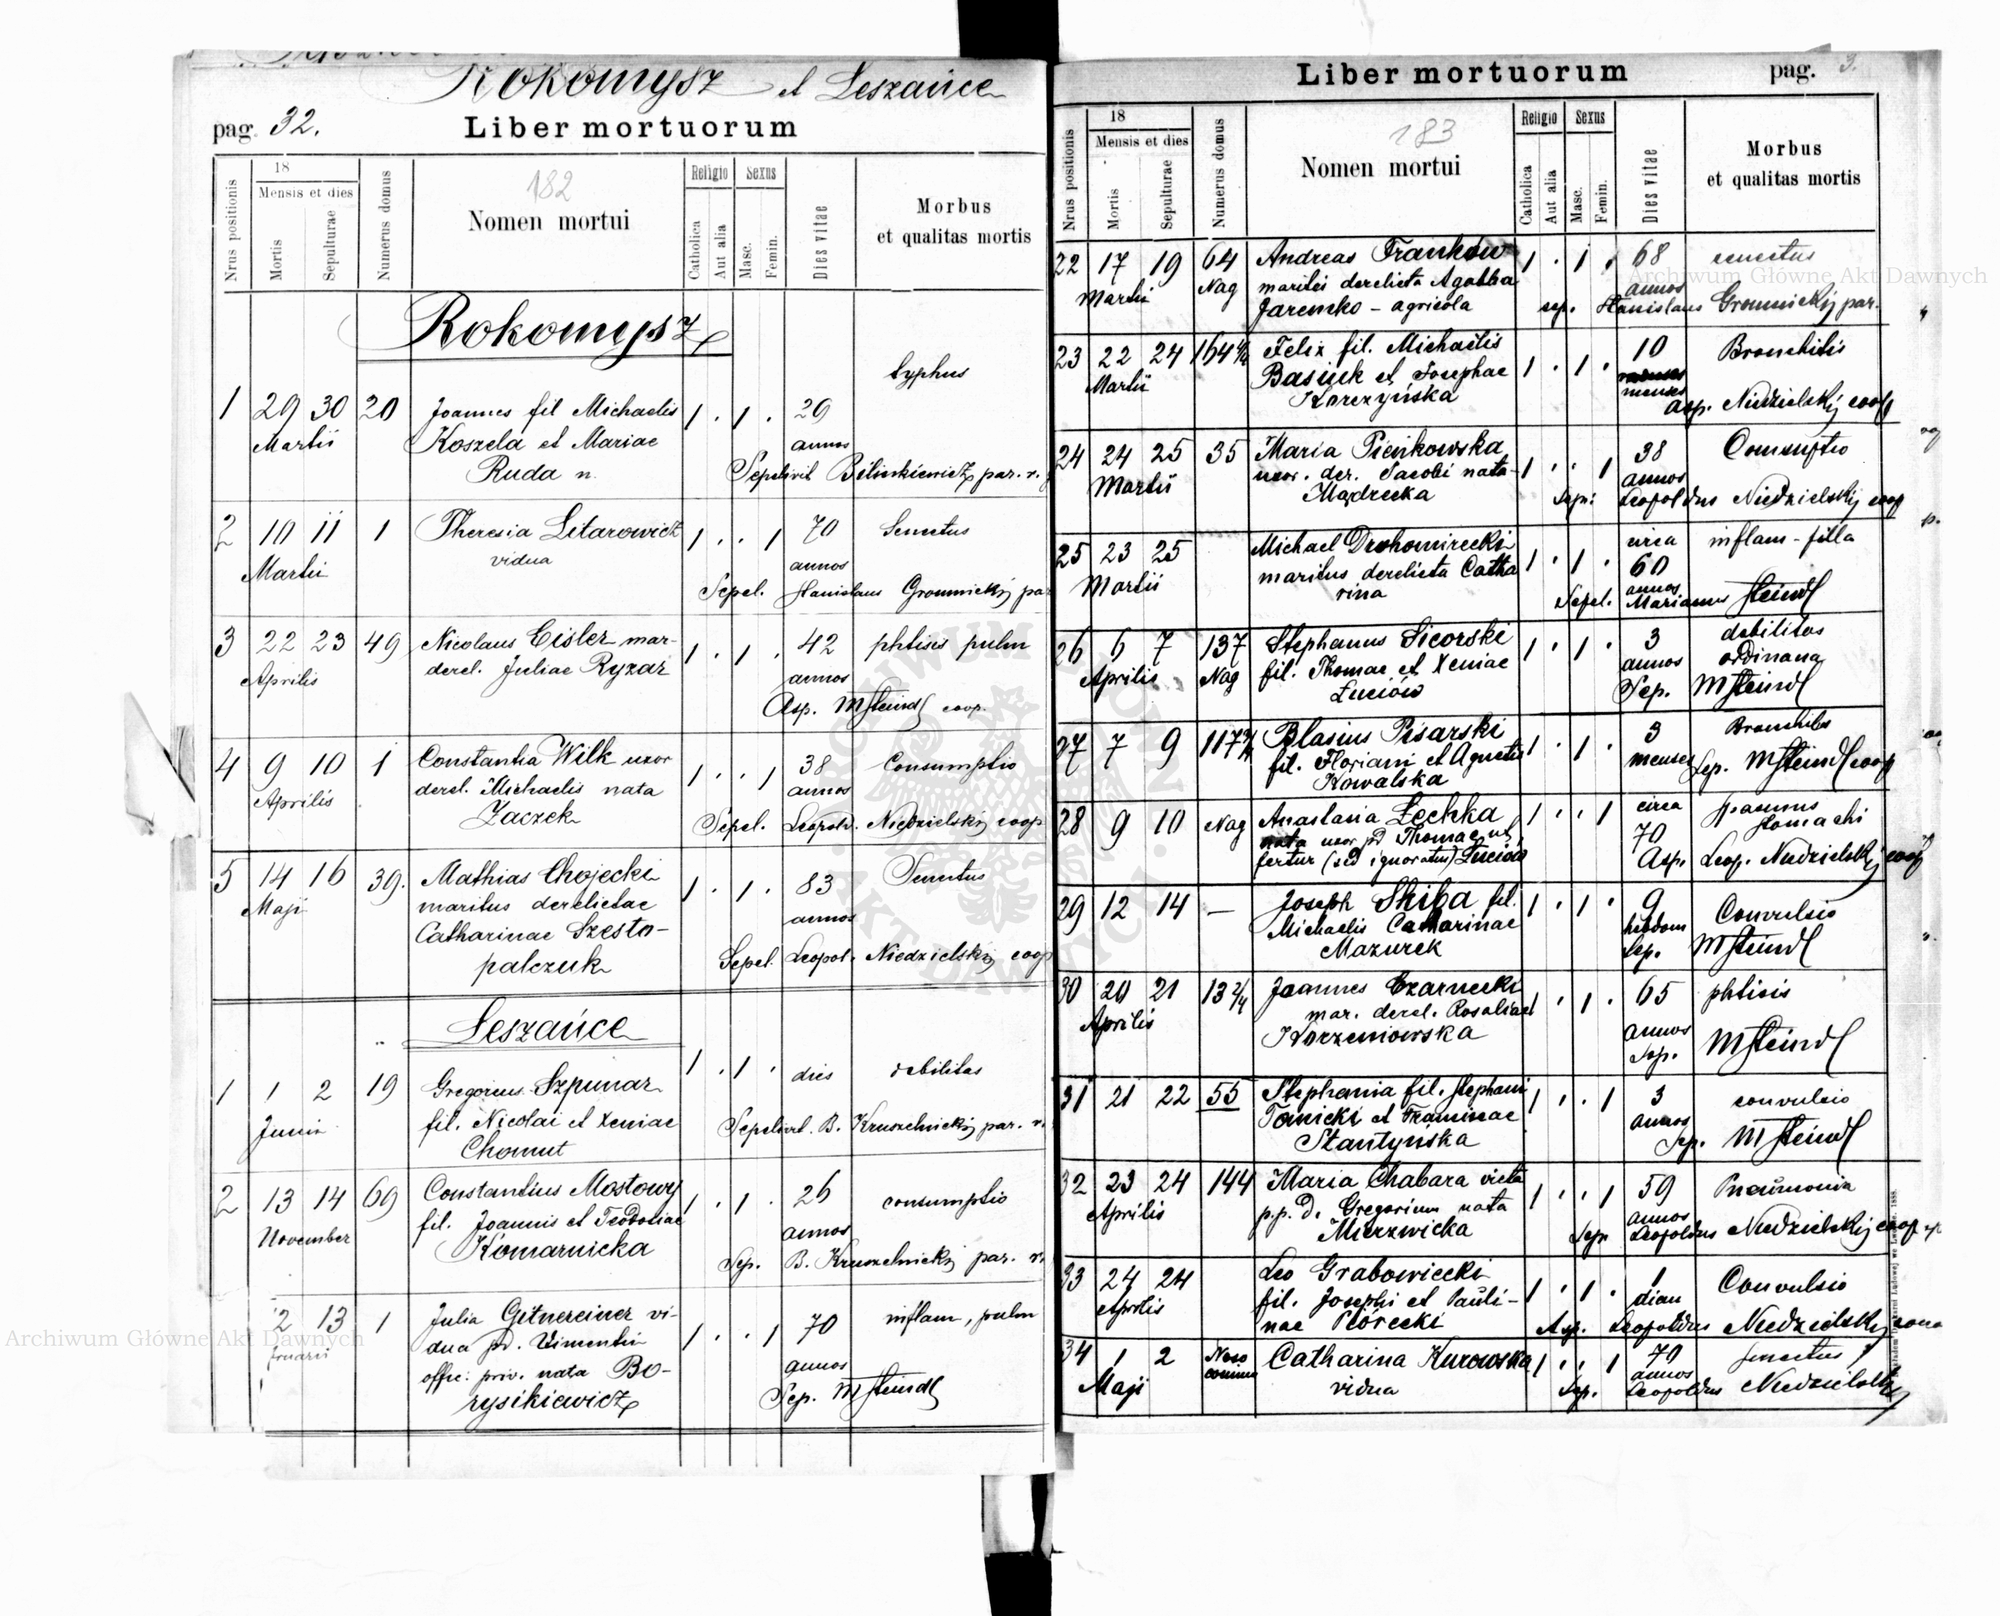 Rokomysz et Leszańce
pag. 32.
Liber mortuorum
Nrus positionis
18
Mensis et dies
Mortis
Sepulturae
Numerus domus
182
Nomen mortui
Religio
Catholica
Aut alia
Sexus
Masc.
Femin.
Dies vitae
Morbus
et qualitas mortis
Rokomysz
typhus
1 29 30 20 Joannes fil Michaelis 1 . 1 . 29
Martii Koszela et Mariae annos
Ruda n. Sepelivit Bilinkiewicz par. r.
2 10 11 1 Theresia Litarowicz 1 . . 1 70 Senectus
Martii vidua annos
Sepel. Stanislaus Gromnicki par
3 22 23 49 Nicolaus Eisler mar- 1 . 1 . 42 phtisis pulm
Aprilis derel. Juliae Ryzar annos
Asp. MSteindl coop.
4 9 10 1 Constantia Wilk uxor 1 . . 1 38 Consumptio
Aprilis derel. Michaelis nata annos
Zaczek Sepel. Leopold. Niedzielski coop
5 14 16 39. Mathias Chojecki 1 . 1 . 83 Senectus
Maji maritus derelictae annos
Catharinae Szesto-
palczuk Sepel. Leopol. Niedzielski coop
Leszańce
1 1 2 19 Gregorius Szpunar 1 . 1 . dies debilitas
Junii fil. Nicolai et Xeniae Sepelivit. B. Kruszelnicki par. r.
Chomut
2 13 14 69 Constantius Mostowy 1 . 1 . 26 consumptio
November fil. Joannis et Teodosiae annos
Komarnicka Sep. B. Kruszelnicki par. r.
2 13 1 Julia Gitnereiner vi- 1 . . 1 70 inflam, pulm
bruarii dua pd. Vimentii annos
offic: priv. nata Bo- Sep. MSteindl
rysikiewicz
Liber mortuorum
pag. 3.
Nrus positionis
18
Mensis et dies
Mortis
Sepulturae
Numerus domus
183
Nomen mortui
Religio
Catholica
Aut alia
Sexus
Masc.
Femin.
Dies vitae
Morbus
et qualitas mortis
22 17 19 64 Andreas Franków 1 . 1 . 68 senectus
Martii Nag maritus derelicta Agabba annos
Jaremko - agricola sep. Stanislaus Gromnicki par.
23 22 24 164 Felix fil. Michaelis 1 . 1 . 10 Bronchitis
Martii Basiuk et Josephae menses
Korczyńska Asp. Niedzielski coop
24 24 25 35 Maria Pieńkowska 1 . . 1 38 Consuptio
Martii uxor. der. Jacobi nata annos
Mądrecka Sep: Leopoldus Niedzielski coop
25 23 25 Michael Drohomirecki 1 . 1 . circa 60 inflam -
Martii maritus derelicta Catha annos
rina Sepel. Marianus Steindl
26 6 7 137 Stephanus Sicorski 1 . 1 . 3 debilitas
Aprilis Nag fil. Thomae et Xeniae annos ordinana
Łuciów Sep. MSteindl
27 7 9 117 Blasius Pisarski 1 . 1 . 3 Bronchitis
fil. Floriani et Agnetis menses Sep. MSteindl coop
Kowalska
28 9 10 Nag Anastasia Łechka 1 . . 1 circa spasmus
nata uxor pd Thomae ut 70 stomachi
fertur (sed ignoratus) Łuciów Asp. Leop. Niedzielski coop
29 12 14 — Joseph Skiba fil. 1 . 1 . 9 Convulsio
Michaelis Catharinae hebdom
Mazurek Sep. MSteindl
30 20 21 13 2/4 Joannes Czarnecki 1 . 1 . 65 phtisis
Aprilis mar. derel. Rosaliae annos
Korzeniowska Sep. MSteindl
31 21 22 55 Stephania fil. Stephani 1 . . 1 3 convulsio
Tanicki et Franincae annos
Stantynska Sep. MSteindl
32 23 24 144 Maria Chabara victa 1 . . 1 59 Pneumonia
Aprilis p.p. d. Gregorium nata annos
Mierzwicka Sep Leopoldus Niedzielski coop
33 24 24 Leo Grabowiecki 1 . 1 . 1 Convulsio
Aprilis fil. Josephi et Pauli- diem
nae Piórecki Asp. Leopoldus Niedzielski
34 1 2 Noso Catharina Kurowska 1 . . 1 70 senectus
Maji comium vidua annos
Sep. Leopoldus Niedzielski
Archiwum Główne Akt Dawnych
Archiwum Główne Akt Dawnych
ARCHIWUM GŁÓWNE AKT DAWNYCH